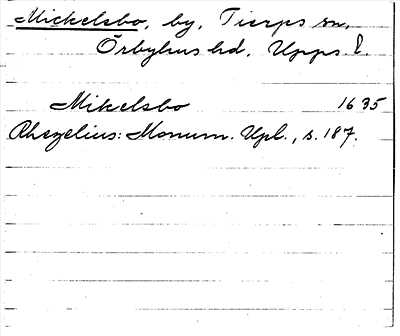 Mickelsbo, by, Tierps sn,
Örbyhus hd, Upps. l.
Mikelsbo 1635
Rhezelius: Monum. Upl., s. 187.